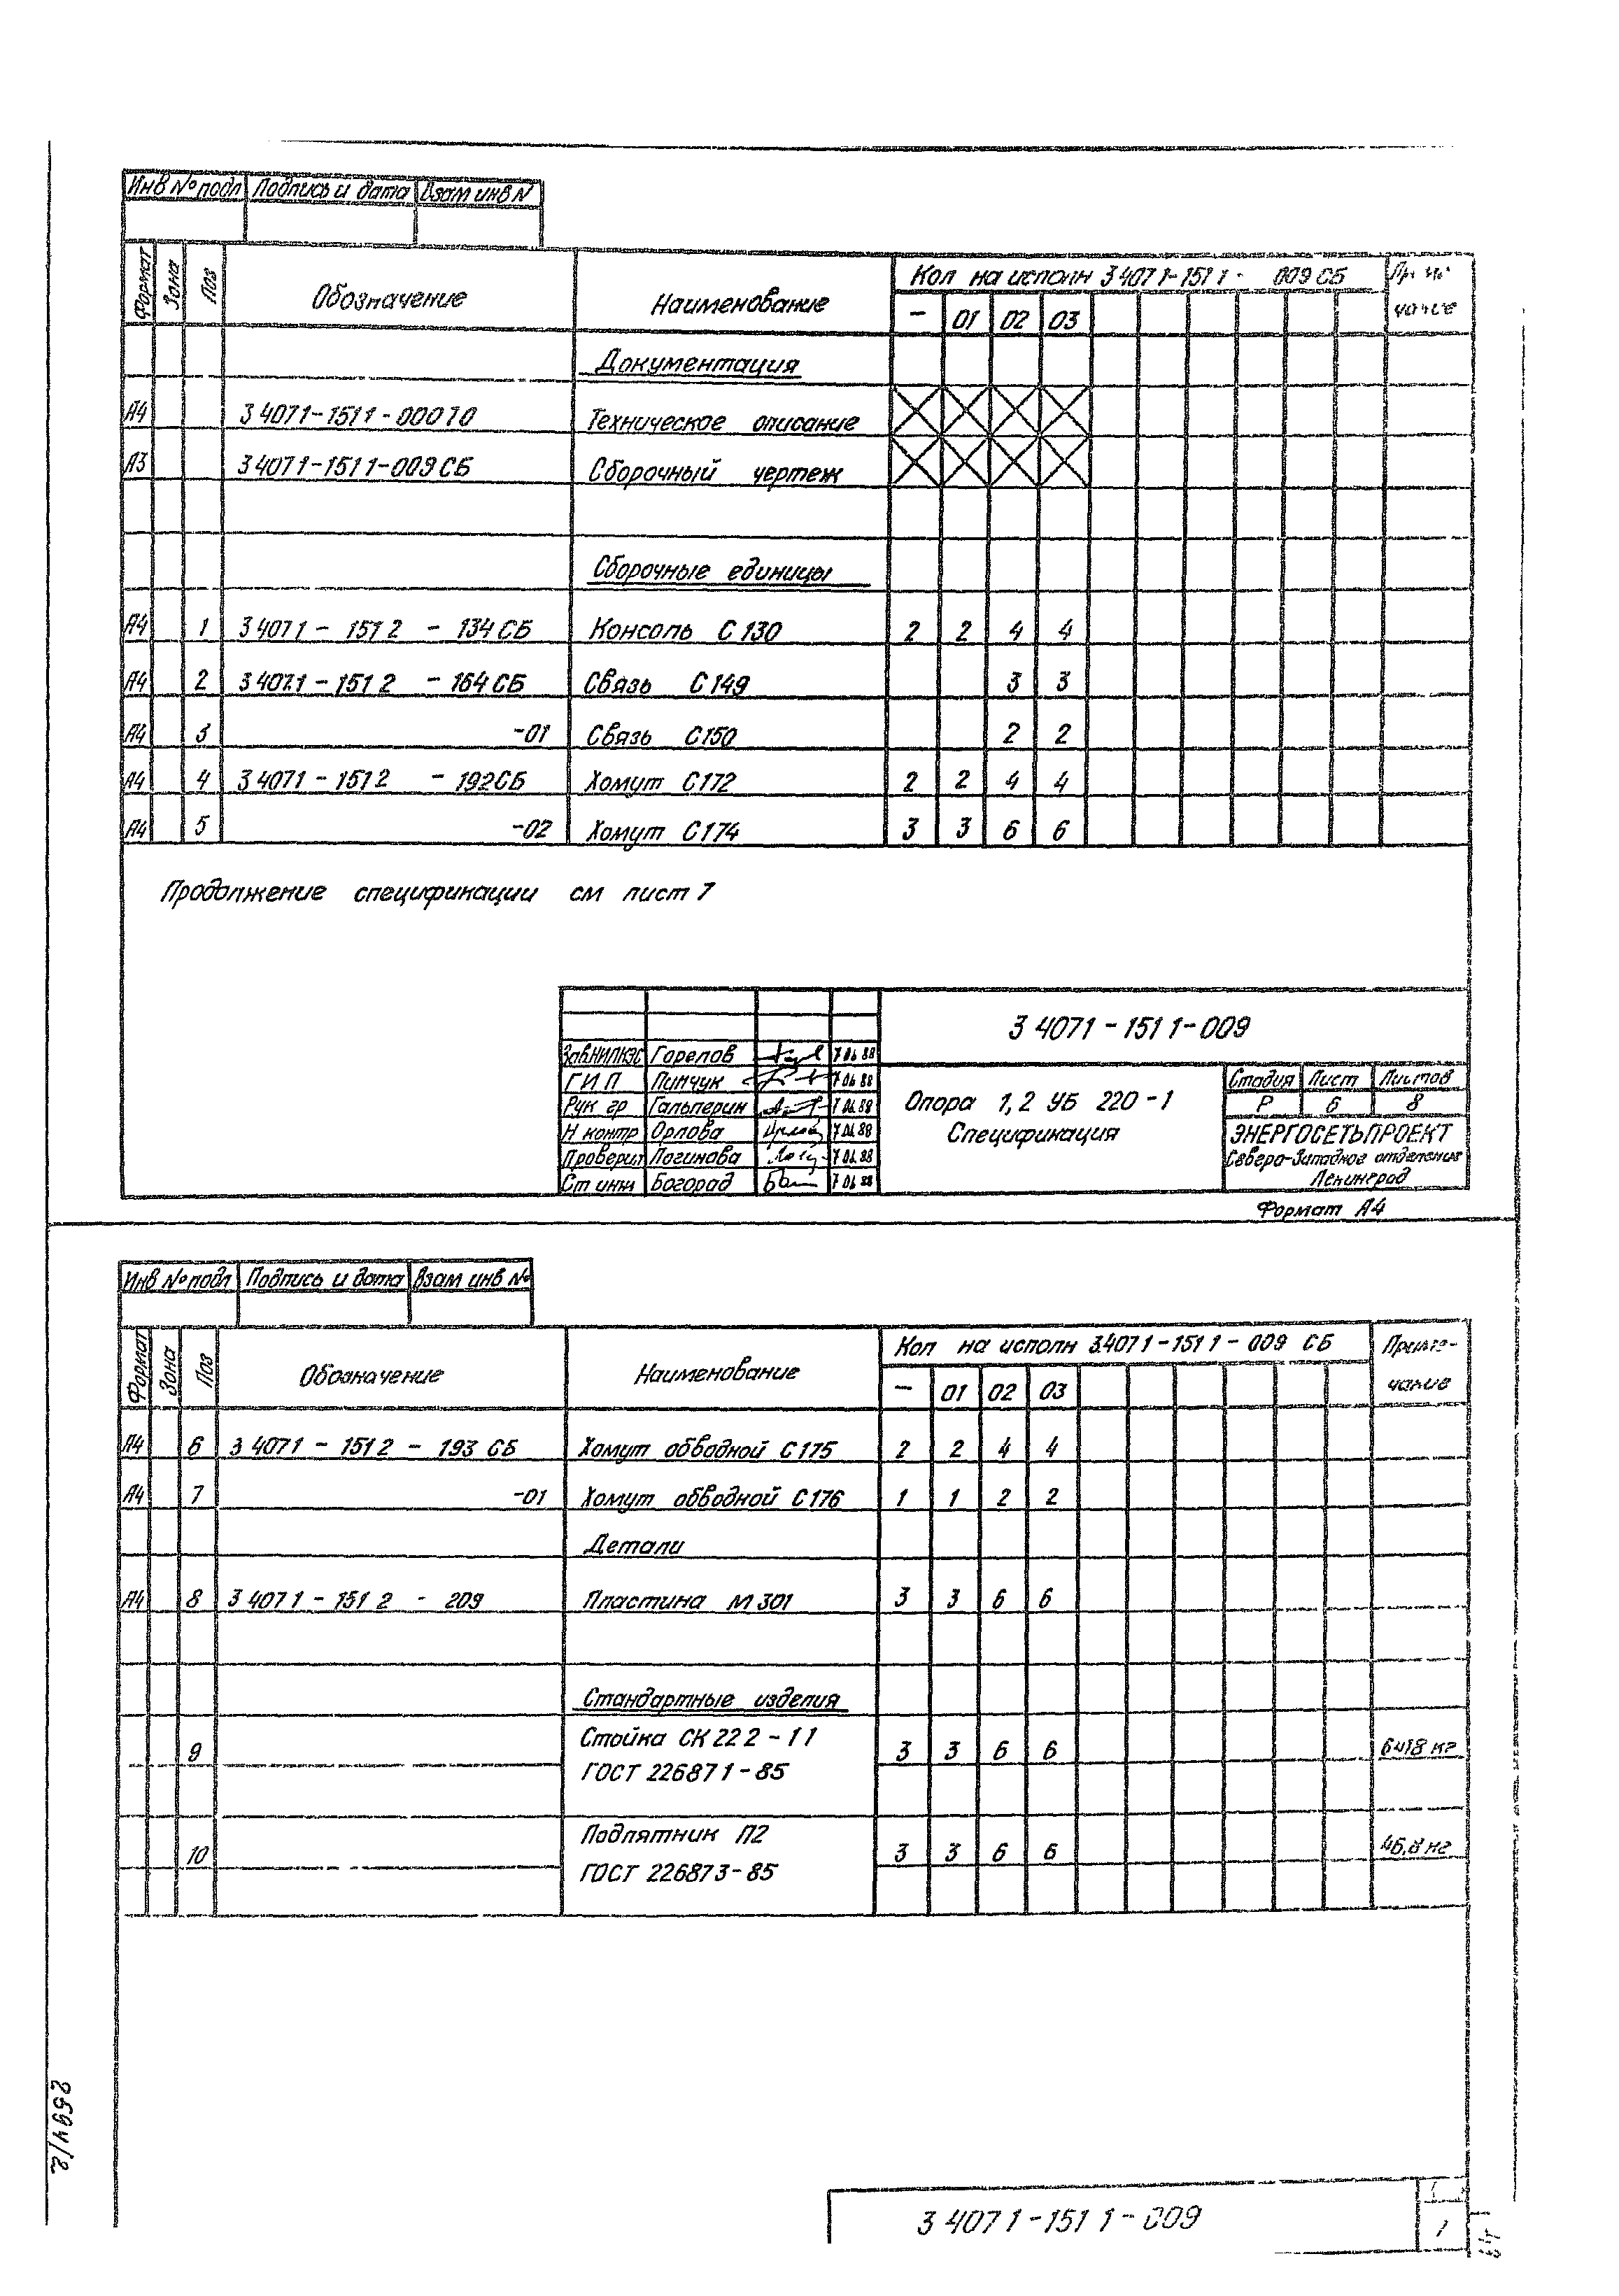 Инв № подл Подпись и дата Взам инв N
Формат Зона Поз Обозначение Наименование Кол на исполн 3 407 1-151 1- 009 СБ
- 01 02 03
Документация
А4 3 407 1-151 1-000 ТО Техническое описание
А3 3 407 1-151 1-009 СБ Сборочный чертеж
Сборочные единицы
А4 1 3 407 1 - 151 2 - 134 СБ Консоль С 130 2 2 4 4
А4 2 3 407.1 - 151 2 - 164 СБ Связь С 149 3 3
А4 3 -01 Связь С150 2 2
А4 4 3 407 1 - 151 2 - 192 СБ Хомут С172 2 2 4 4
А4 5 -02 Хомут С174 3 3 6 6
Продолжение спецификации см лист 7
3 407 1 - 151 1 - 009
Зав.НИЛКЭС Горелов 7 06 88
ГИП Пинчук 7 06 88
Рук гр Гальперин 7 06 88
Н контр Орлова 7 06 88
Проверил Логинова 7 06 88
Ст инж Богорад 7 06 88
Опора 1,2 УБ 220 - 1
Спецификация
Стадия Лист Листов
Р 6 8
ЭНЕРГОСЕТЬПРОЕКТ
Северо-Западное отделение
Ленинград
Формат А4
Инв № подл Подпись и дата Взам инв №
Формат Зона Поз Обозначение Наименование Кол на исполн 3.407 1-151 1 - 009 СБ Приме-
- 01 02 03 чание
А4 6 3 407 1 - 151 2 - 193 СБ Хомут обводной С175 2 2 4 4
А4 7 -01 Хомут обводной С176 1 1 2 2
Детали
А4 8 3 407 1 - 151 2 - 209 Пластина М 301 3 3 6 6
Стандартные изделия
9 Стойка СК 22 2 - 1 1 3 3 6 6 6418 кг
ГОСТ 22687 1 - 85
10 Подпятник П2 3 3 6 6 46,8 кг
ГОСТ 22687 3 - 85
3 407 1 - 151 1 - 009